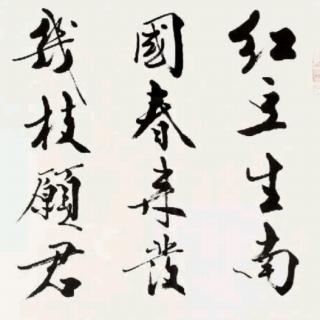 紅豆生南
國春來發
幾枝願君